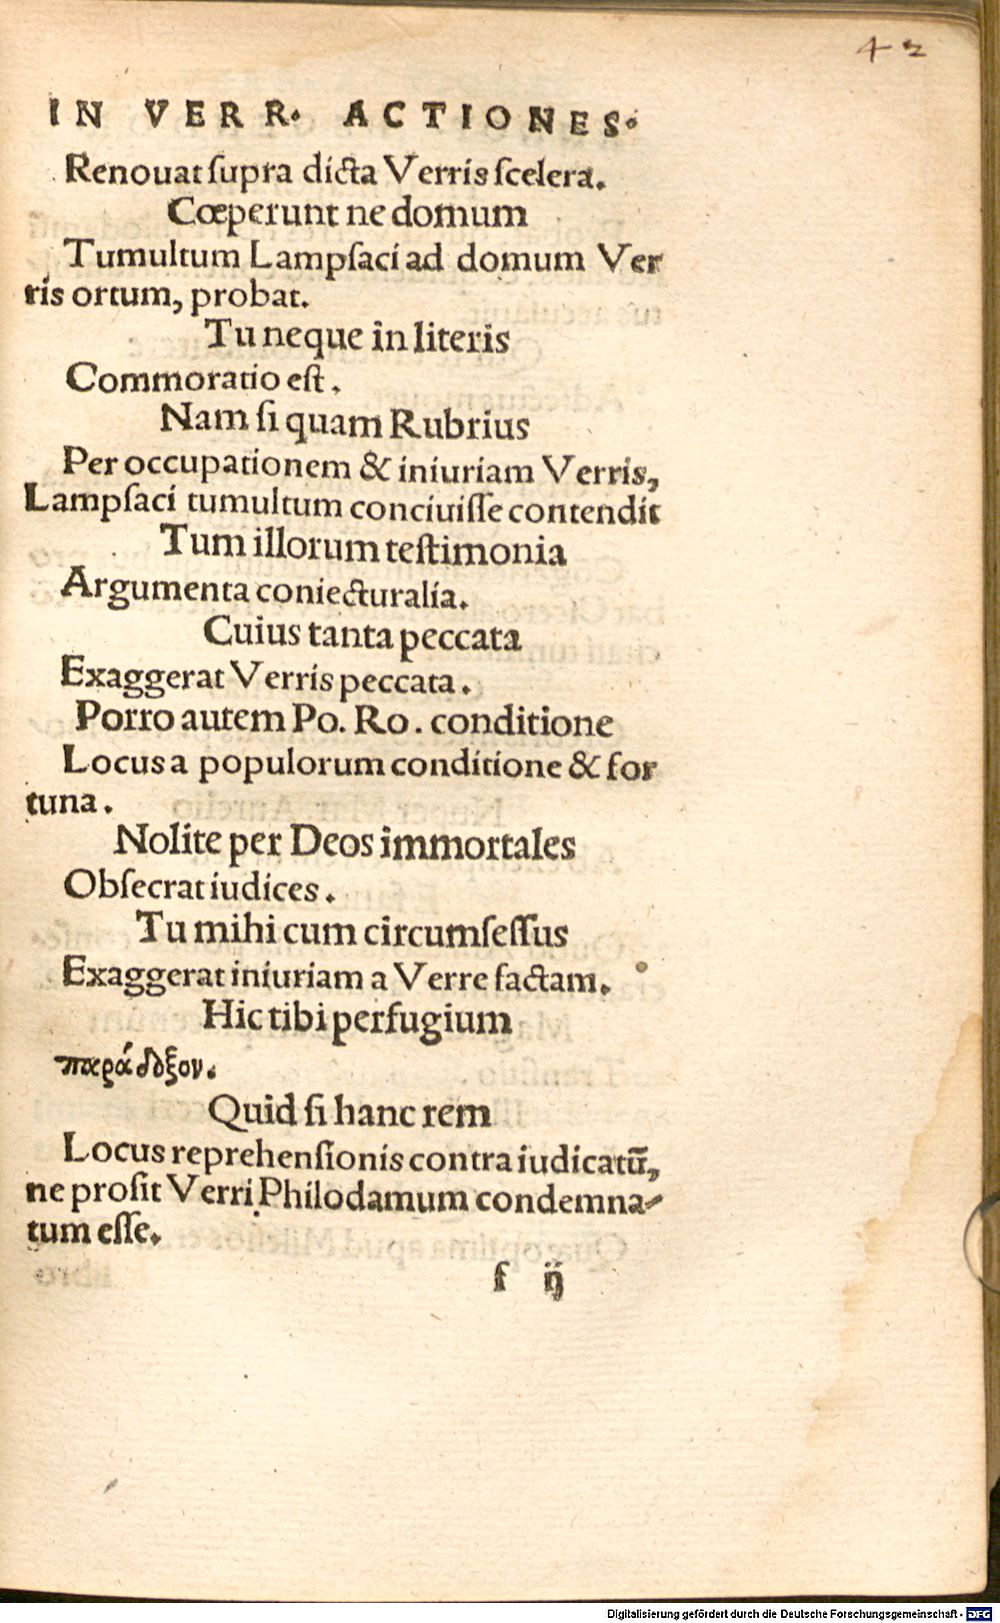 42
IN VERR. ACTIONES.
Renouat ſupra dicta Verris ſcelera.
Cœperunt ne domum
Tumultum Lampſaci ad domum Ver
ris ortum, probat.
Tu neque in literis
Commoratio eſt.
Nam ſi quam Rubrius
Per occupationem & iniuriam Verris,
Lampſaci tumultum conciuiſſe contendit
Tum illorum teſtimonia
Argumenta coniecturalia.
Cuius tanta peccata
Exaggerat Verris peccata.
Porro autem Po. Ro. conditione
Locus a populorum conditione & for
tuna.
Nolite per Deos immortales
Obſecrat iudices.
Tu mihi cum circumſeſſus
Exaggerat iniuriam a Verre factam.
Hic tibi perfugium
παράδοξον.
Quid ſi hanc rem
Locus reprehenſionis contra iudicatū,
ne proſit Verri Philodamum condemna-
tum eſſe.
f ij
Digitalisierung gefördert durch die Deutsche Forschungsgemeinschaft - DFG